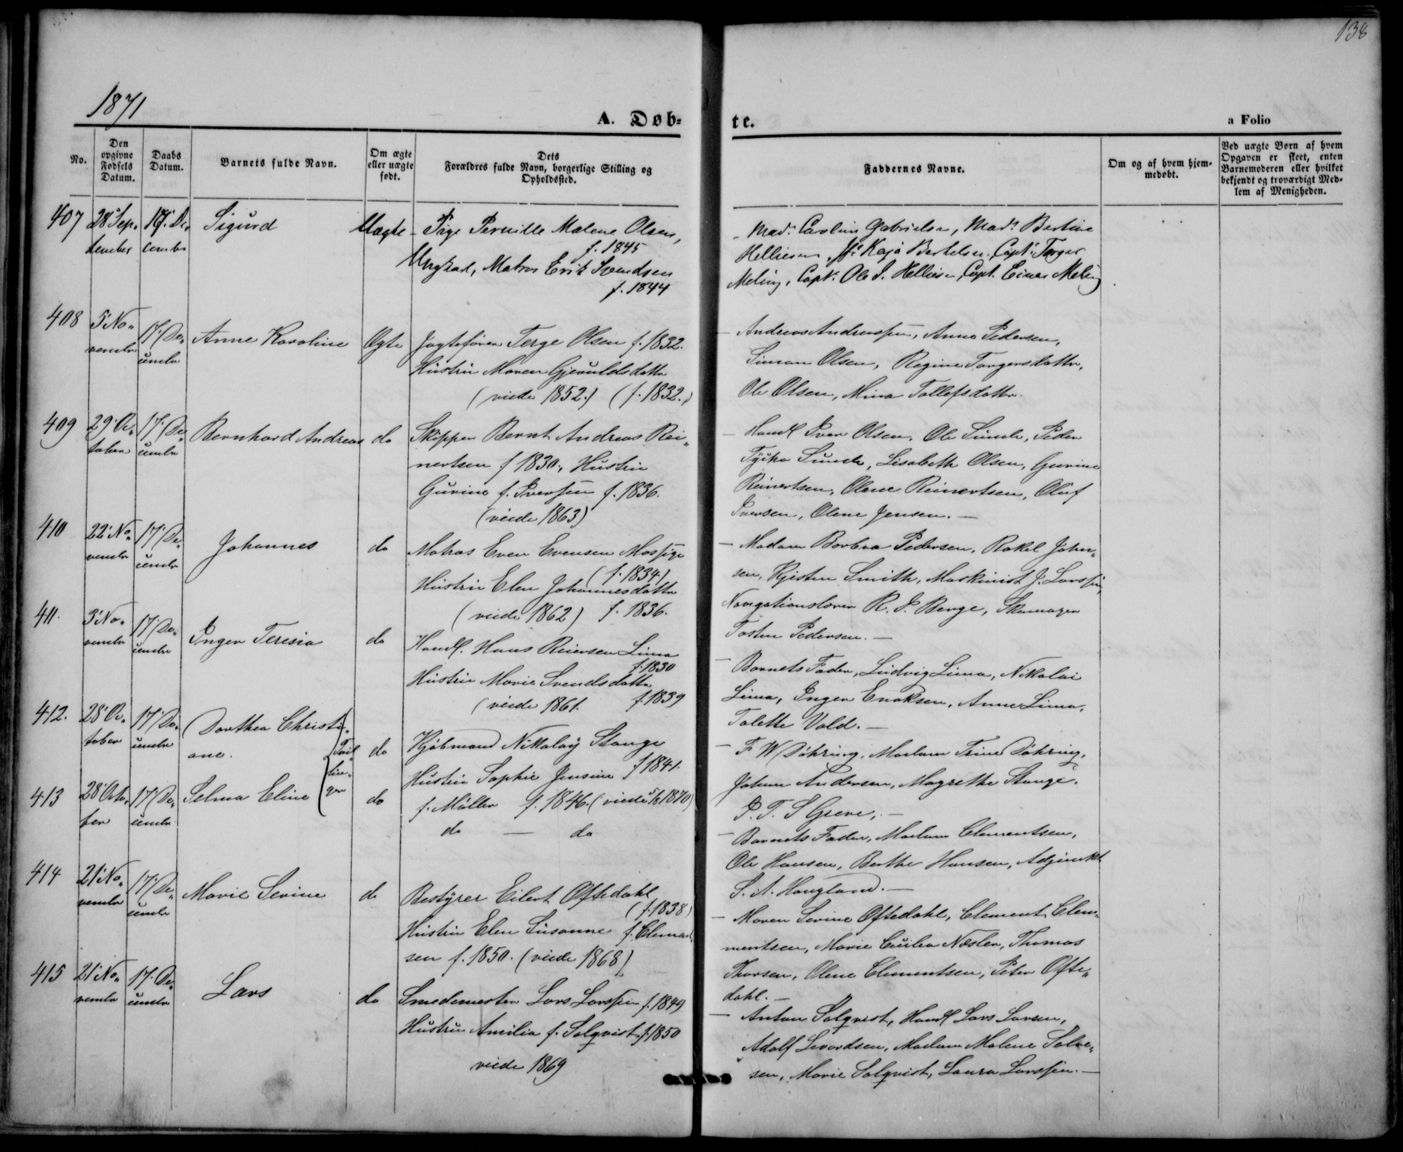 138
1871
A. Døb-
te.
a Folio
No.
Den opgivne Fødsels Datum.
Daabs Datum.
Barnets fulde Navn.
Om ægte eller uægte født.
Dets Forældres fulde Navn, borgerlige Stilling og Opholdssted.
Faddernes Navne.
Om og af hvem hjemmedøbt.
Ved uægte Børn af hvem Opgaven er skeet, enten Barnemoderen eller hvilket bekjendt og troværdigt Medlem af Menigheden.
407 28 Sep-
tember
Sigurd
Uægte
Pige Pernille Malene Olsen,
f. 1845
Ungkarl, Matros Erik Svendsen
f. 1844
Mad. Gabrielsen, Mad. Bertine
Helliesen, Kaja Bertelsen, Capt. Torger
Meling, Capt. Ole S. Helliesen, Capt. Einar Meling
408 5 No-
vember
17 De-
cember
Anne Karoline
Ægte
Jagtefører Terge Olsen f. 1832.
Hustru Maren Gjerulds datter
(viede 1852.) (f. 1832.)
Andreas Andreassen, Anna Pedersen,
Simon Olsen, Regine Torgersdatter,
Ole Olsen, Mina Tollefsdatter
409 29 Oc-
tober
17 De-
cember
Bernhard Andreas
do
Skipper Bernt Andreas Rei-
nertsen f. 1830, Hustru
Gurine f. Iversen f. 1836.
(viede 1863)
Handl. Iver Olsen, Ole Sunde, Peder
Sunde, Lisabeth Olsen, Gurine
Reinertsen, Olene Reinertsen, Oluf
Iversen, Olene Jensen. —
410 22 No-
vember
17 De-
cember
Johannes
do
Matros Even Evensen Mossige
(f. 1834)
Hustru Elen Johannesdatter
(viede 1862) f. 1836.
Madam Barbra Pedersen, Rakel John-
sen, Kjisten Smith, Maskinist J. Larssen,
Navigationslærer R. P. Berge, Skomager
Tosten Pedersen. —
411. 3 No-
vember
17 De-
cember
Inger Teresia
do
Handl. Hans Reiersen Lima
f. 1830
Hustru Marie Svendsdatter
(viede 1861. f. 1839
Barnets Fader, Ludvig Lima, Nikolai
Lima, Inger Enoksen, Anne Lima,
Tolette Vold. —
412. 28 Oc-
tober
17 De-
cember
Dorthea Christi-
ane.
Tvil-
lin-
ger
do
Kjøbmand Nikolay Stange
Hustru Sophie Jensine f. 1841.
f. Müller f. 1846. (viede 1870)
F. W. Døhring, Madam Trine Døhring,
Johan Andersen, Magrethe Stange.
P. T. S. Greve, —
413 28 Octo-
ber
17 De-
cember
Selma Eline
do
do — do
Barnets Fader, Madam Clementsen,
Ole Hansen, Berthe Hansen, Adjunkt
S. A. Hougland. —
414 21 No-
vember
17 De-
cember
Marie Sevine
do
Bestyrer Eilert Oftedahl
(f. 1838)
Hustru Elen Susanne f. Clement-
sen f. 1850. (viede 1868)
Maren Sevine Oftedahl, Clement Clem-
mentsen, Marie Cecilia Næsler, Thomas
Thorsen, Olene Clementsen, Peter Ofte-
dahl. —
415 21 No-
vember
17 De-
cember
Lars
do
Smedemester Lars Larssen f. 1849
Hustru Amilia f. Solqvist f. 1850
viede 1869
Anton Solqvist, Handl. Lars Larsen,
Adolf Sevordsen, Madam Malene Salve-
sen, Marie Solqvist, Laura Larssen. —